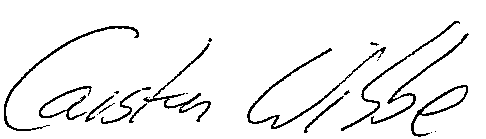 Carsten Wibbe